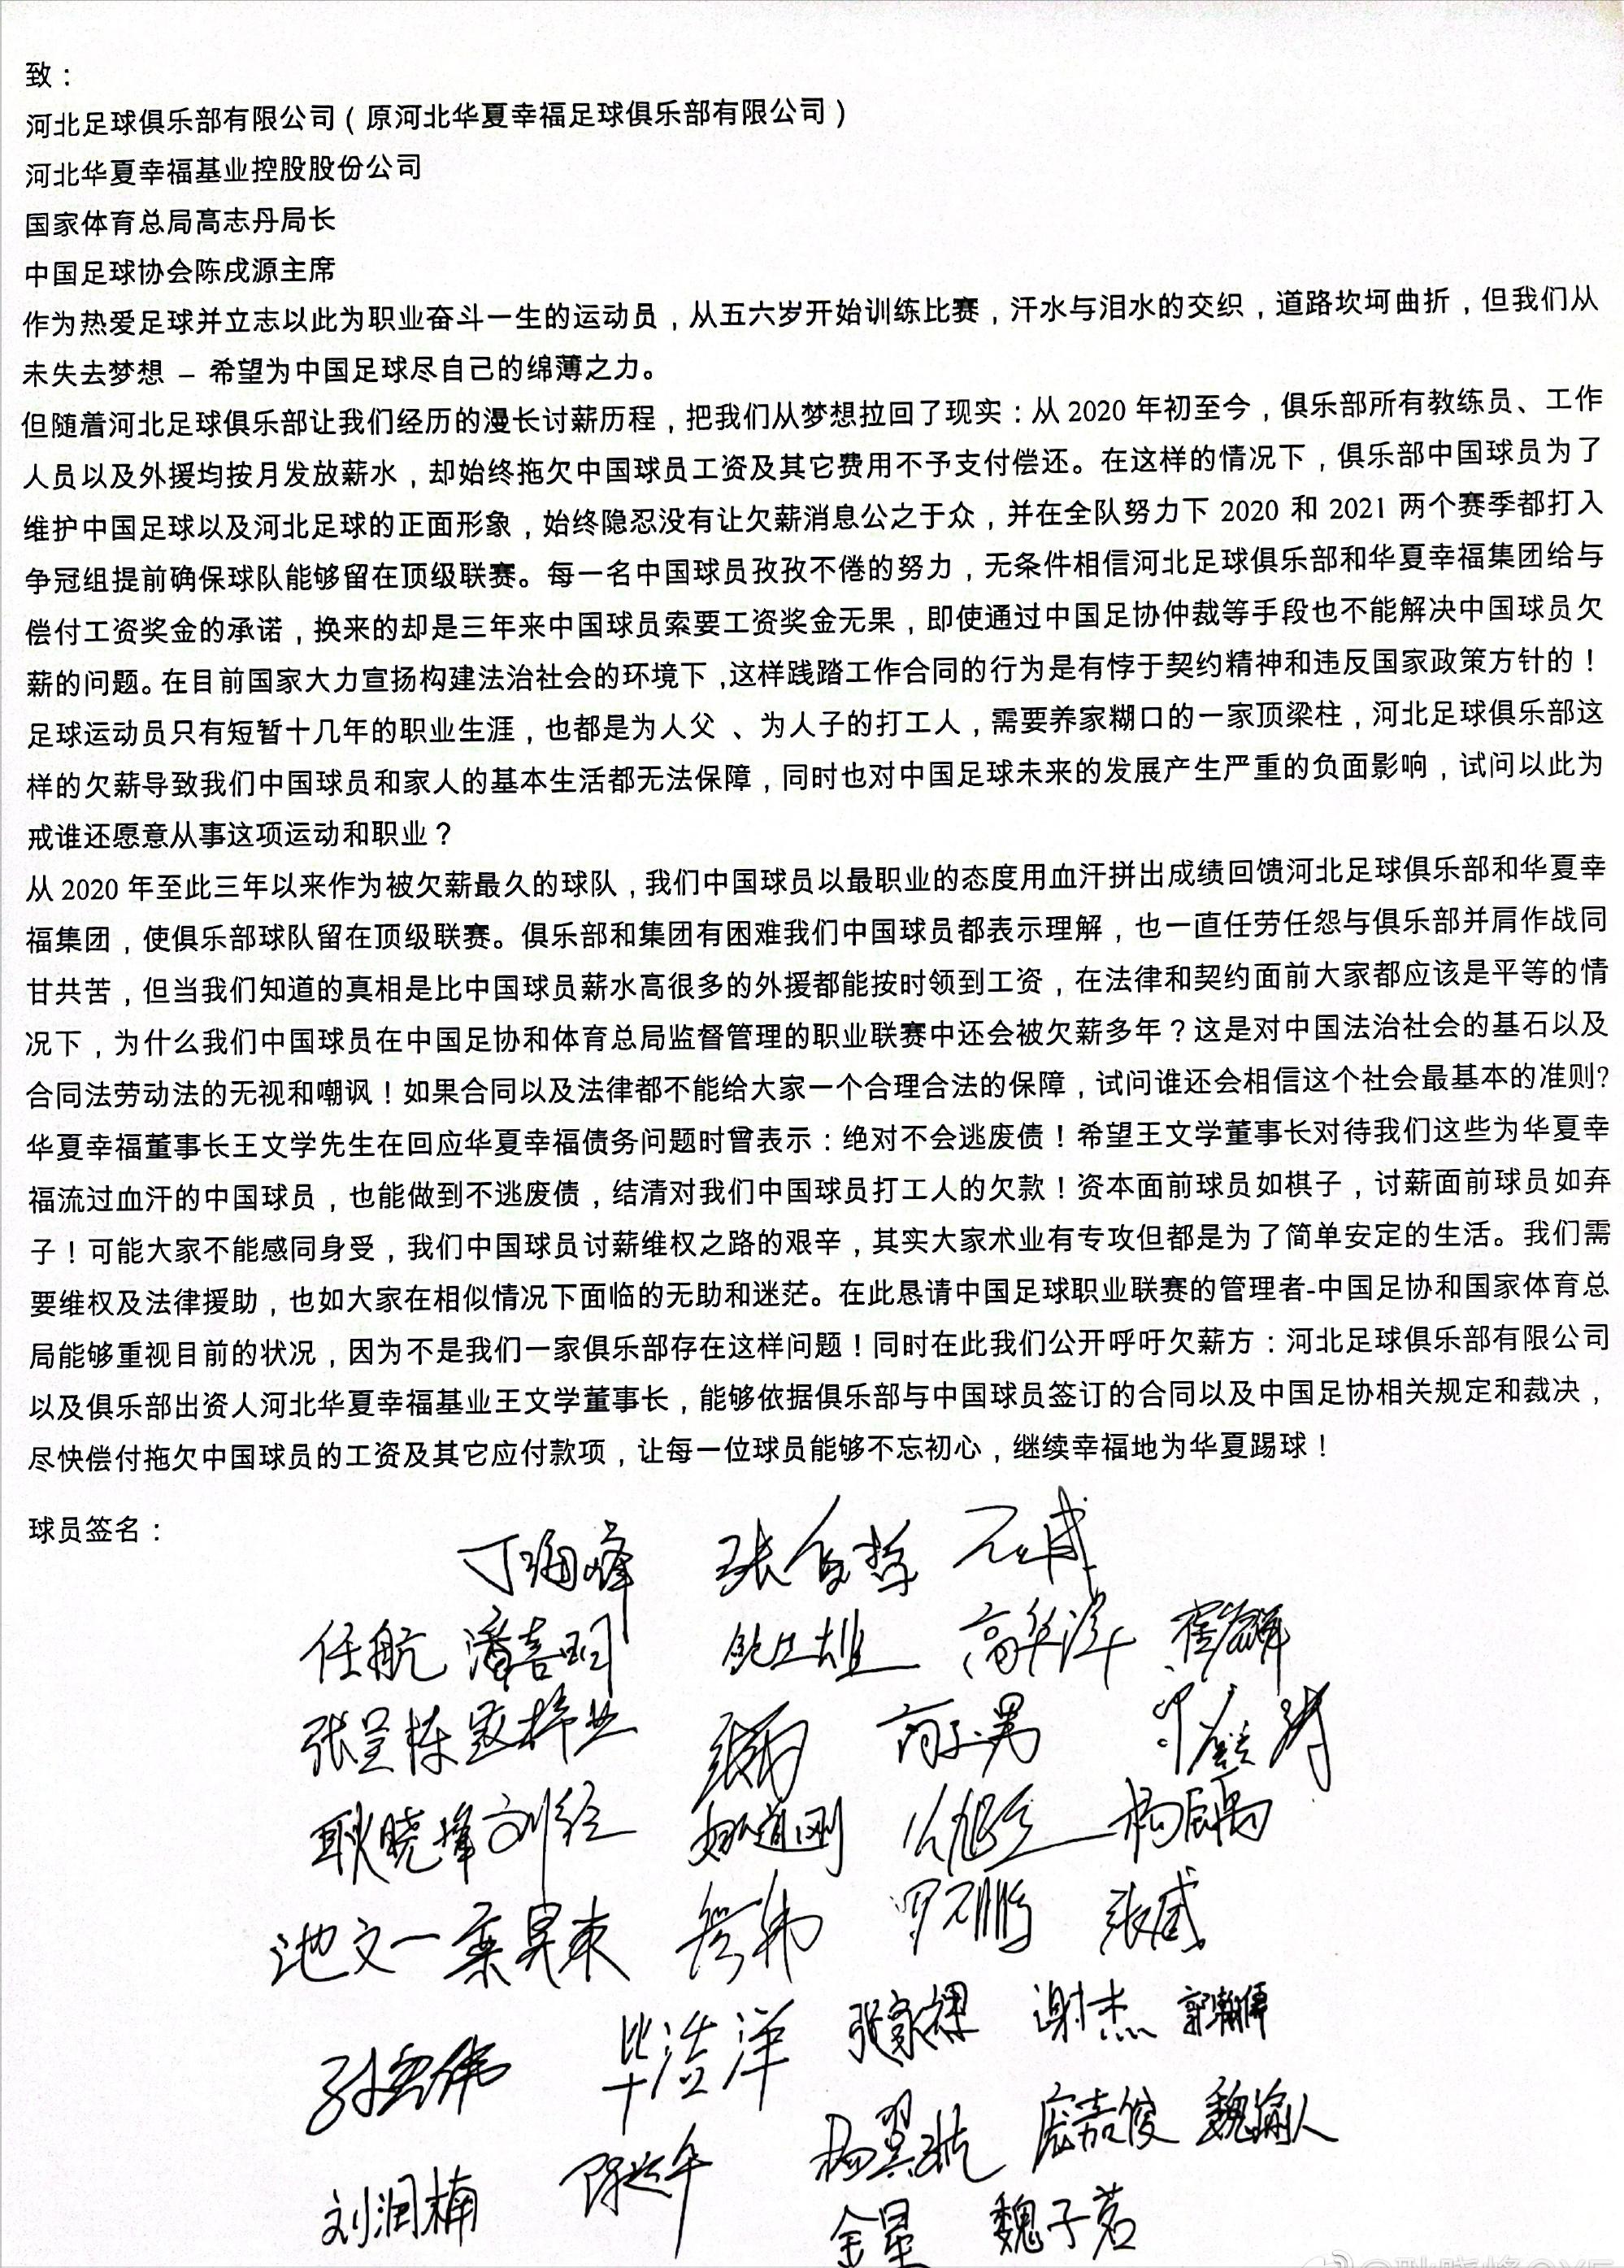 致：
河北足球俱乐部有限公司（原河北华夏幸福足球俱乐部有限公司）
河北华夏幸福基业控股股份公司
国家体育总局高志丹局长
中国足球协会陈戌源主席
作为热爱足球并立志以此为职业奋斗一生的运动员，从五六岁开始训练比赛，汗水与泪水的交织，道路坎坷曲折，但我们从
未失去梦想 – 希望为中国足球尽自己的绵薄之力。
但随着河北足球俱乐部让我们经历的漫长讨薪历程，把我们从梦想拉回了现实：从 2020 年初至今，俱乐部所有教练员、工作
人员以及外援均按月发放薪水，却始终拖欠中国球员工资及其它费用不予支付偿还。在这样的情况下，俱乐部中国球员为了
维护中国足球以及河北足球的正面形象，始终隐忍没有让欠薪消息公之于众，并在全队努力下 2020 和 2021 两个赛季都打入
争冠组提前确保球队能够留在顶级联赛。每一名中国球员孜孜不倦的努力，无条件相信河北足球俱乐部和华夏幸福集团给与
偿付工资奖金的承诺，换来的却是三年来中国球员索要工资奖金无果，即使通过中国足协仲裁等手段也不能解决中国球员欠
薪的问题。在目前国家大力宣扬构建法治社会的环境下,这样践踏工作合同的行为是有悖于契约精神和违反国家政策方针的！
足球运动员只有短暂十几年的职业生涯，也都是为人父 、为人子的打工人，需要养家糊口的一家顶梁柱，河北足球俱乐部这
样的欠薪导致我们中国球员和家人的基本生活都无法保障，同时也对中国足球未来的发展产生严重的负面影响，试问以此为
戒谁还愿意从事这项运动和职业？
从 2020 年至此三年以来作为被欠薪最久的球队，我们中国球员以最职业的态度用血汗拼出成绩回馈河北足球俱乐部和华夏幸
福集团，使俱乐部球队留在顶级联赛。俱乐部和集团有困难我们中国球员都表示理解，也一直任劳任怨与俱乐部并肩作战同
甘共苦，但当我们知道的真相是比中国球员薪水高很多的外援都能按时领到工资，在法律和契约面前大家都应该是平等的情
况下，为什么我们中国球员在中国足协和体育总局监督管理的职业联赛中还会被欠薪多年？这是对中国法治社会的基石以及
合同法劳动法的无视和嘲讽！如果合同以及法律都不能给大家一个合理合法的保障，试问谁还会相信这个社会最基本的准则?
华夏幸福董事长王文学先生在回应华夏幸福债务问题时曾表示：绝对不会逃废债！希望王文学董事长对待我们这些为华夏幸
福流过血汗的中国球员，也能做到不逃废债，结清对我们中国球员打工人的欠款！资本面前球员如棋子，讨薪面前球员如弃
子！可能大家不能感同身受，我们中国球员讨薪维权之路的艰辛，其实大家术业有专攻但都是为了简单安定的生活。我们需
要维权及法律援助，也如大家在相似情况下面临的无助和迷茫。在此恳请中国足球职业联赛的管理者-中国足协和国家体育总
局能够重视目前的状况，因为不是我们一家俱乐部存在这样问题！同时在此我们公开呼吁欠薪方：河北足球俱乐部有限公司
以及俱乐部出资人河北华夏幸福基业王文学董事长，能够依据俱乐部与中国球员签订的合同以及中国足协相关规定和裁决，
尽快偿付拖欠中国球员的工资及其它应付款项，让每一位球员能够不忘初心，继续幸福地为华夏踢球！
球员签名：
丁海峰
任航 潘喜明 鲍亚雄 高华泽
张呈栋
耿晓峰 刘径 姚道刚 杨辰禹
池文一 栾昊东 张威
毕浩洋 张家祺 谢杰
杨翼航 庞嘉俊
刘润楠
金星 魏子茗